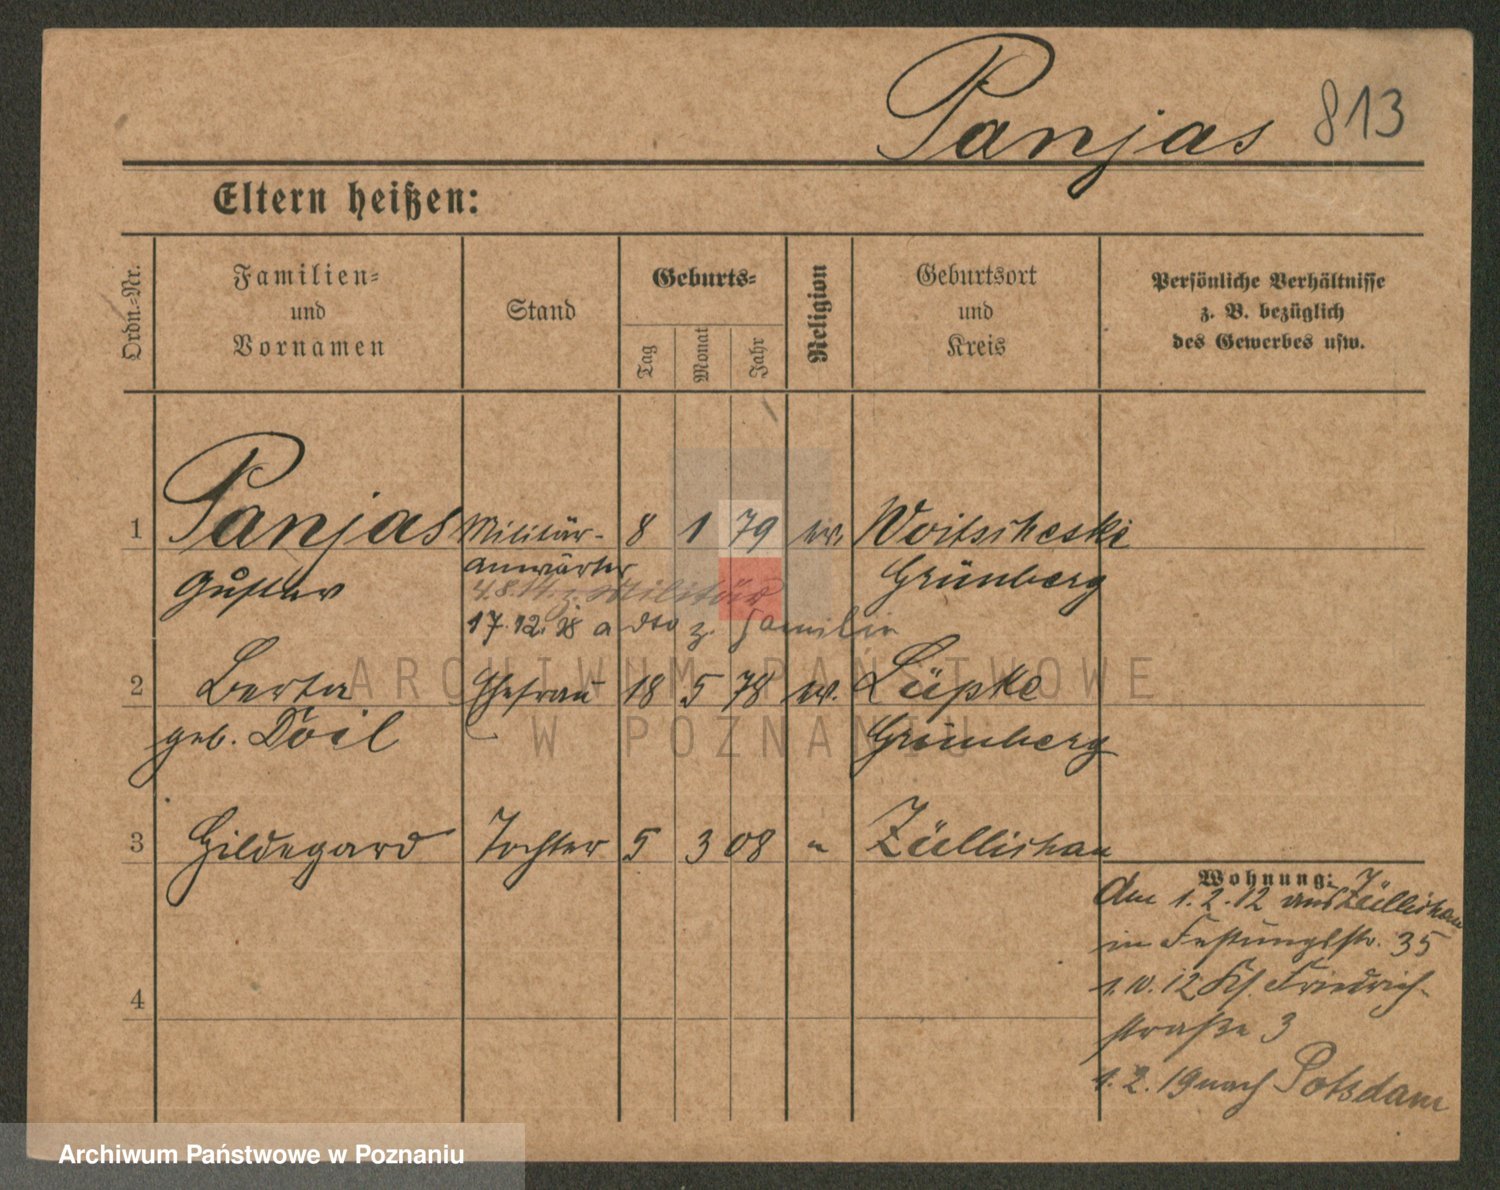 Panjas 813
Eltern heißen:
Ordn.-Nr.
Familien-
und
Vornamen
Stand
Geburts-
Tag
Monat
Jahr
Religion
Geburtsort
und
Kreis
Persönliche Verhältnisse
z. B. bezüglich
des Gewerbes usw.
1 Panjas Militär- 8 1 79 Woitscheske
anwärter
Gustav Grünberg
4.8.14. z. Militär
17.12.18 a dto z. Familie
2 Berta Ehefrau 18 5 78 Lüpke
geb. Doil Grünberg
3 Hildegard Tochter 5 3 08 " Züllichau
Wohnung:
Am 1.2.12 aus Züllichau
in Festungsstr. 35
1.10.12 Friedrich-
straße 3
1.2.19 nach Potsdam
4
ARCHIWUM PAŃSTWOWE
W POZNANIU
Archiwum Państwowe w Poznaniu